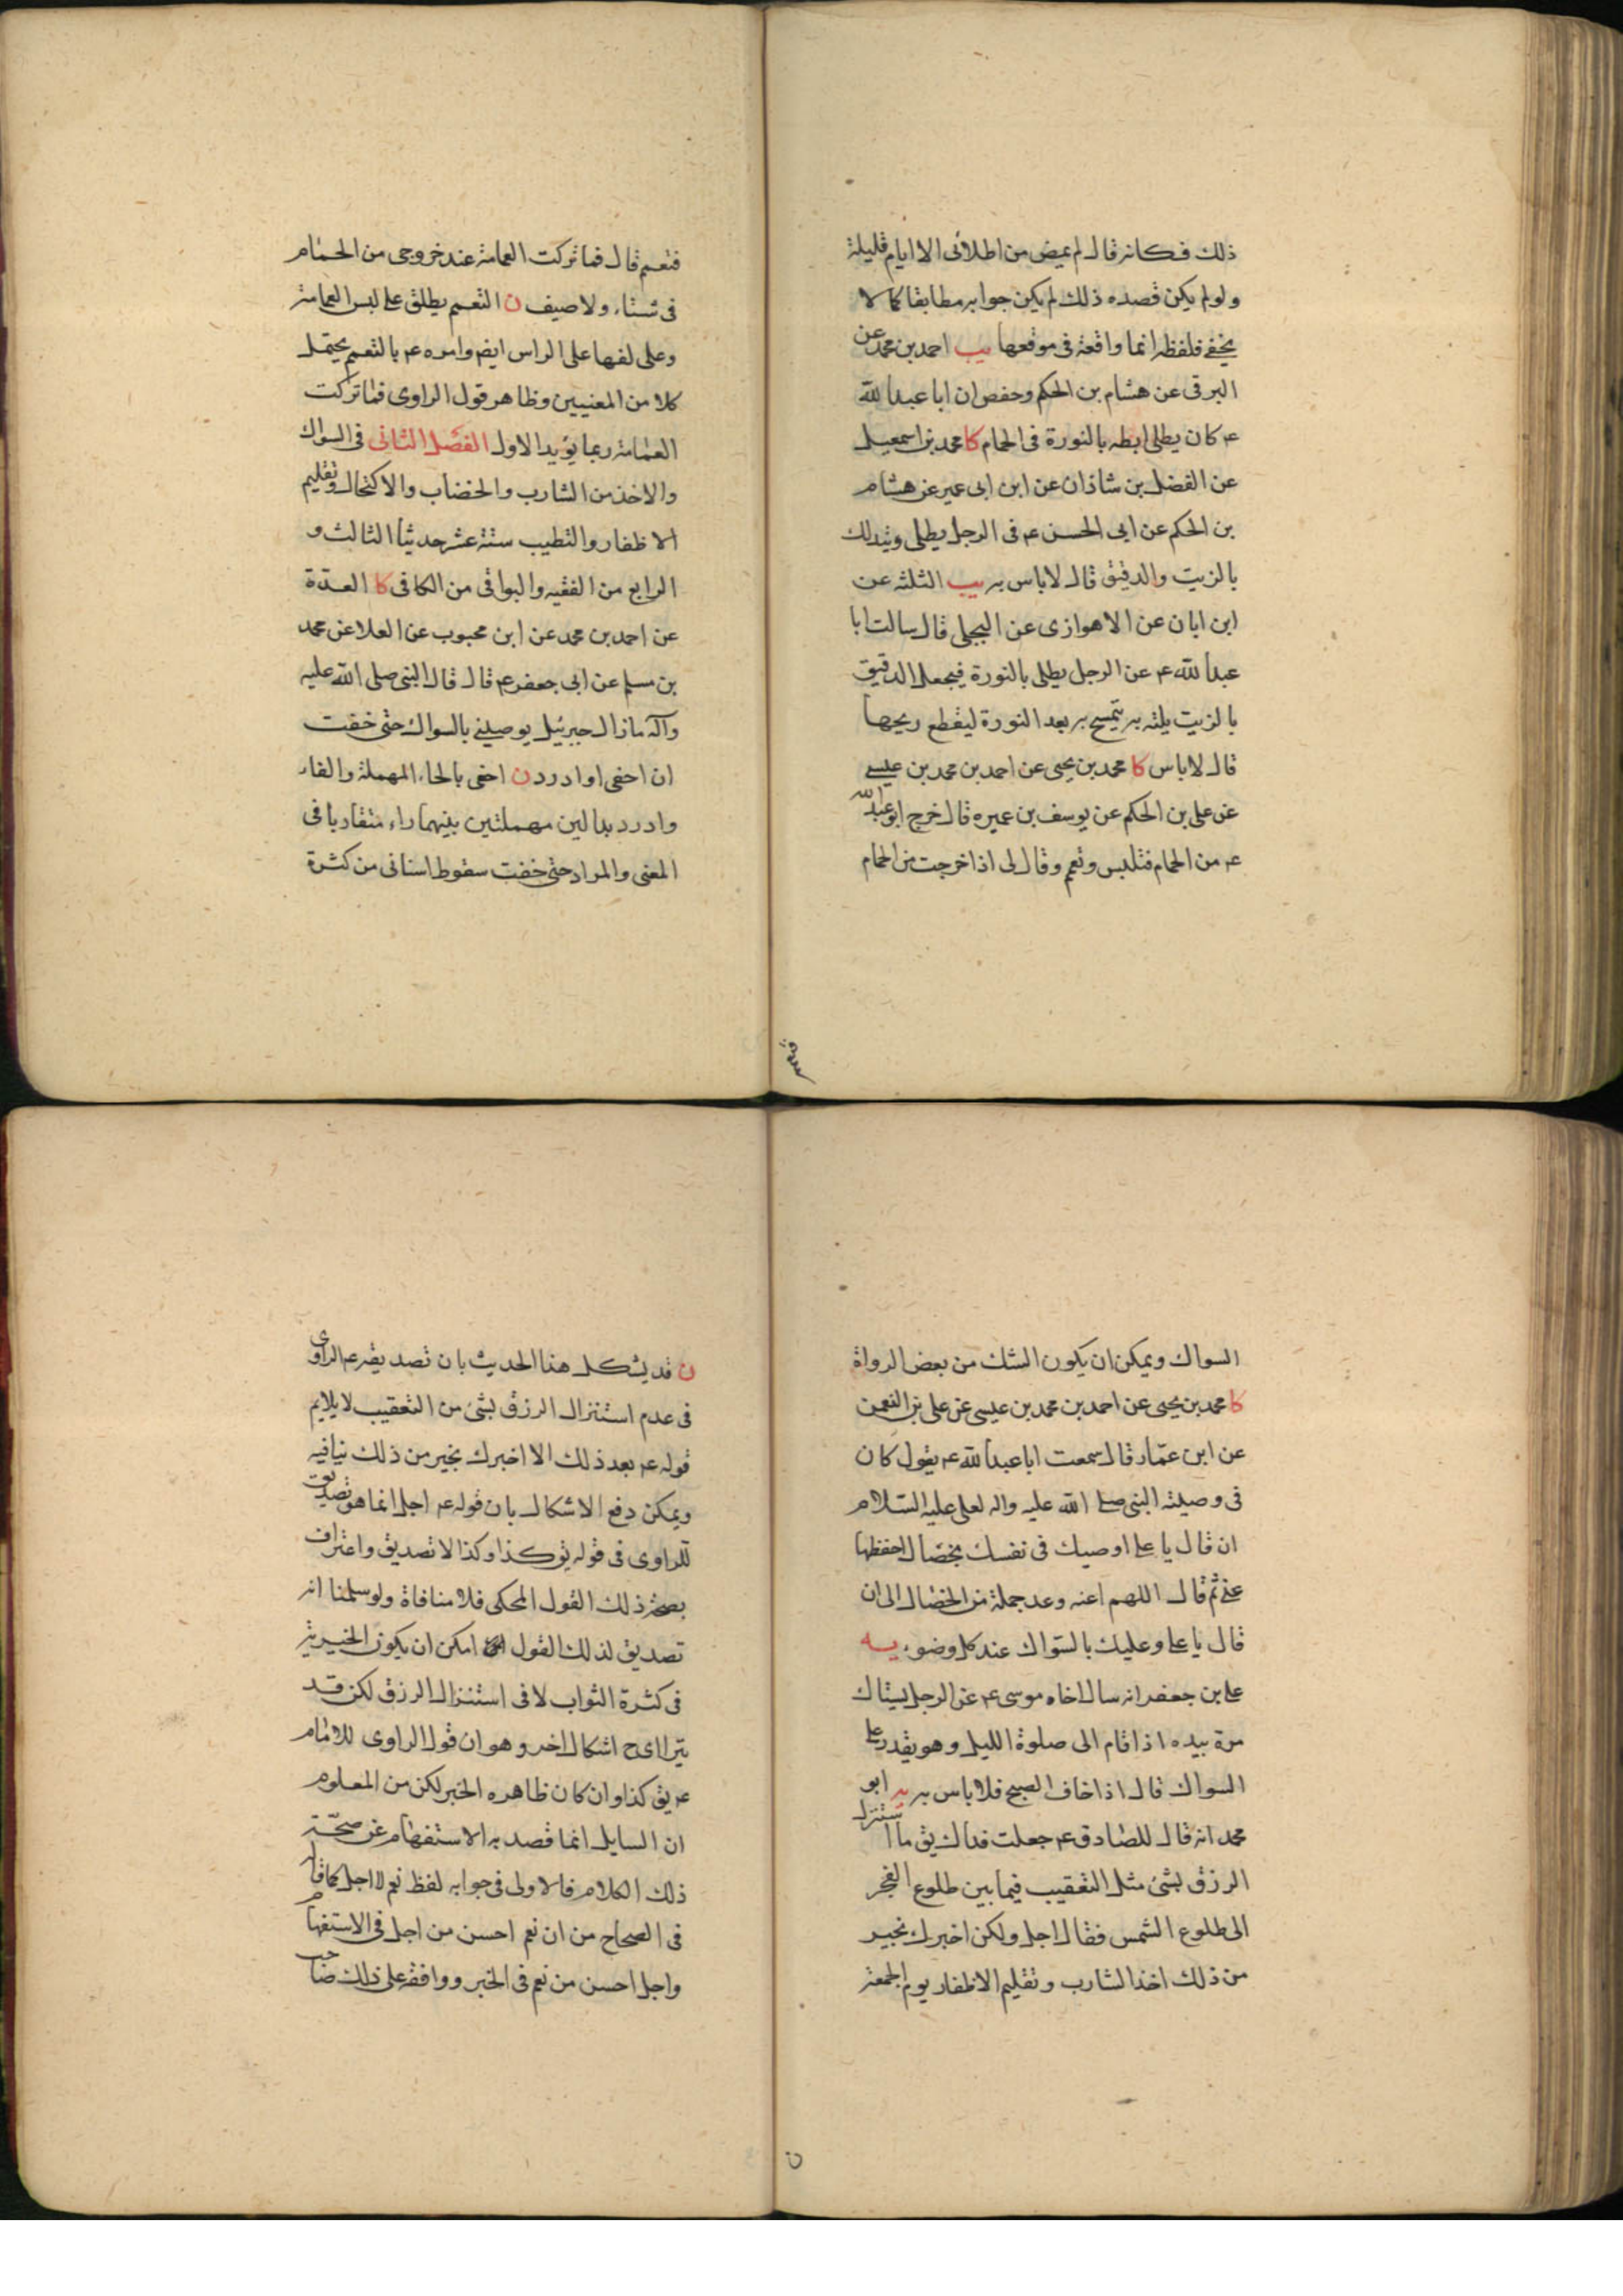 ذلك فكانه قال لم يمض من اطلائى الا ايام قليلة
ولو لم يكن قصده ذلك لم يكن جوابه مطابقا كما لا
يخفى فلفظة انما واقعة فى موقعها يب احمد بن محمد عن
البرقى عن هشام بن الحكم وحفص ان ابا عبد الله
ع كان يطلى ابطه بالنورة فى الحمام كا محمد بن اسمعيل
عن الفضل بن شاذان عن ابن ابى عمير عن هشام
بن الحكم عن ابى الحسن ع فى الرجل يطلى ويتدلك
بالزيت والدقيق قال لا باس به يب الثلثه عن
ابن ابان عن الاهوازى عن البجلى قال سالت ابا
عبد الله ع عن الرجل يطلى بالنورة فيجعل الدقيق
بالزيت يلته به يتمسح به بعد النورة ليقطع ريحها
قال لا باس كا محمد بن يحيى عن احمد بن محمد بن عيسى
عن على بن الحكم عن يوسف بن عميره قال خرج ابو عبد الله
ع من الحمام فتلبس وتعمم وقال لى اذا خرجت من الحمام
فتعمم
فتعمم قال فما تركت العمامة عند خروجى من الحمام
فى شتاء ولا صيف ن التعمم يطلق على لبس العمامة
وعلى لفها على الراس ايضا وامره ع بالتعمم يحتمل
كلا من المعنيين وظاهر قول الراوى فما تركت
العمامة ربما يؤيد الاول الفصل الثانى فى السواك
والاخذ من الشارب والخضاب والاكتحال وتقليم
الاظفار والتطيب ستة عشر حديثا الثالث و
الرابع من الفقيه والبواقى من الكافى كا العدة
عن احمد بن محمد عن ابن محبوب عن العلا عن محمد
بن مسلم عن ابى جعفر ع قال قال النبى صلى الله عليه
وآله ما زال جبرئيل يوصينى بالسواك حتى خفت
ان احفى او ادرد ن احفى بالحاء المهملة والفاء
وادرد بدالين مهملتين بينهما راء متقاربا فى
المعنى والمراد حتى خفت سقوط اسنانى من كثرة
السواك ويمكن ان يكون الشك من بعض الرواة
كا محمد بن يحيى عن احمد بن محمد بن عيسى عن على بن النعمن
عن ابن عمار قال سمعت ابا عبد الله ع يقول كان
فى وصيته النبى صلى الله عليه واله لعلى عليه السلام
ان قال يا على اوصيك فى نفسك بخصال احفظها
عنى ثم قال اللهم اعنه وعد جملة من الخصال الى ان
قال يا على وعليك بالسواك عند كل وضوء يه
على بن جعفر انه سال اخاه موسى ع عن الرجل يستاك
مرة بيده اذا قام الى صلوة الليل وهو يقدر على
السواك قال اذا خاف الصبح فلا باس به يه ابو
محمد انه قال للصادق ع جعلت فداك يق ما استنزل
الرزق بشئ مثل التعقيب فيما بين طلوع الفجر
الى طلوع الشمس فقال اجل ولكن اخبرك بخير
من ذلك اخذ الشارب وتقليم الاظفار يوم الجمعة
ن
ن قد يشكل هذا الحديث بان تصديقه ع الراوى
فى عدم استنزال الرزق بشئ من التعقيب لا يلايم
قوله ع بعد ذلك الا اخبرك بخير من ذلك ينافيه
ويمكن دفع الاشكال بان قوله ع اجل انما هو تصديق
للراوى فى قوله يق كذا وكذا لا تصديق واعتراف
بصحة ذلك القول المحكى فلا منافاة ولو سلمنا انه
تصديق لذلك القول امكن ان يكون الخيرية
فى كثرة الثواب لا فى استنزال الرزق لكن قد
يتراى ح اشكال اخر وهو ان قول الراوى للامام
ع يق كذا وان كان ظاهره الخبر لكن من المعلوم
ان السايل انما قصد به الاستفهام عن صحة
ذلك الكلام فالاولى فى جوابه لفظ نعم لا اجل كما قال
فى الصحاح من ان نعم احسن من اجل فى الاستفهام
واجل احسن من نعم فى الخبر ووافقه على ذلك صاحب